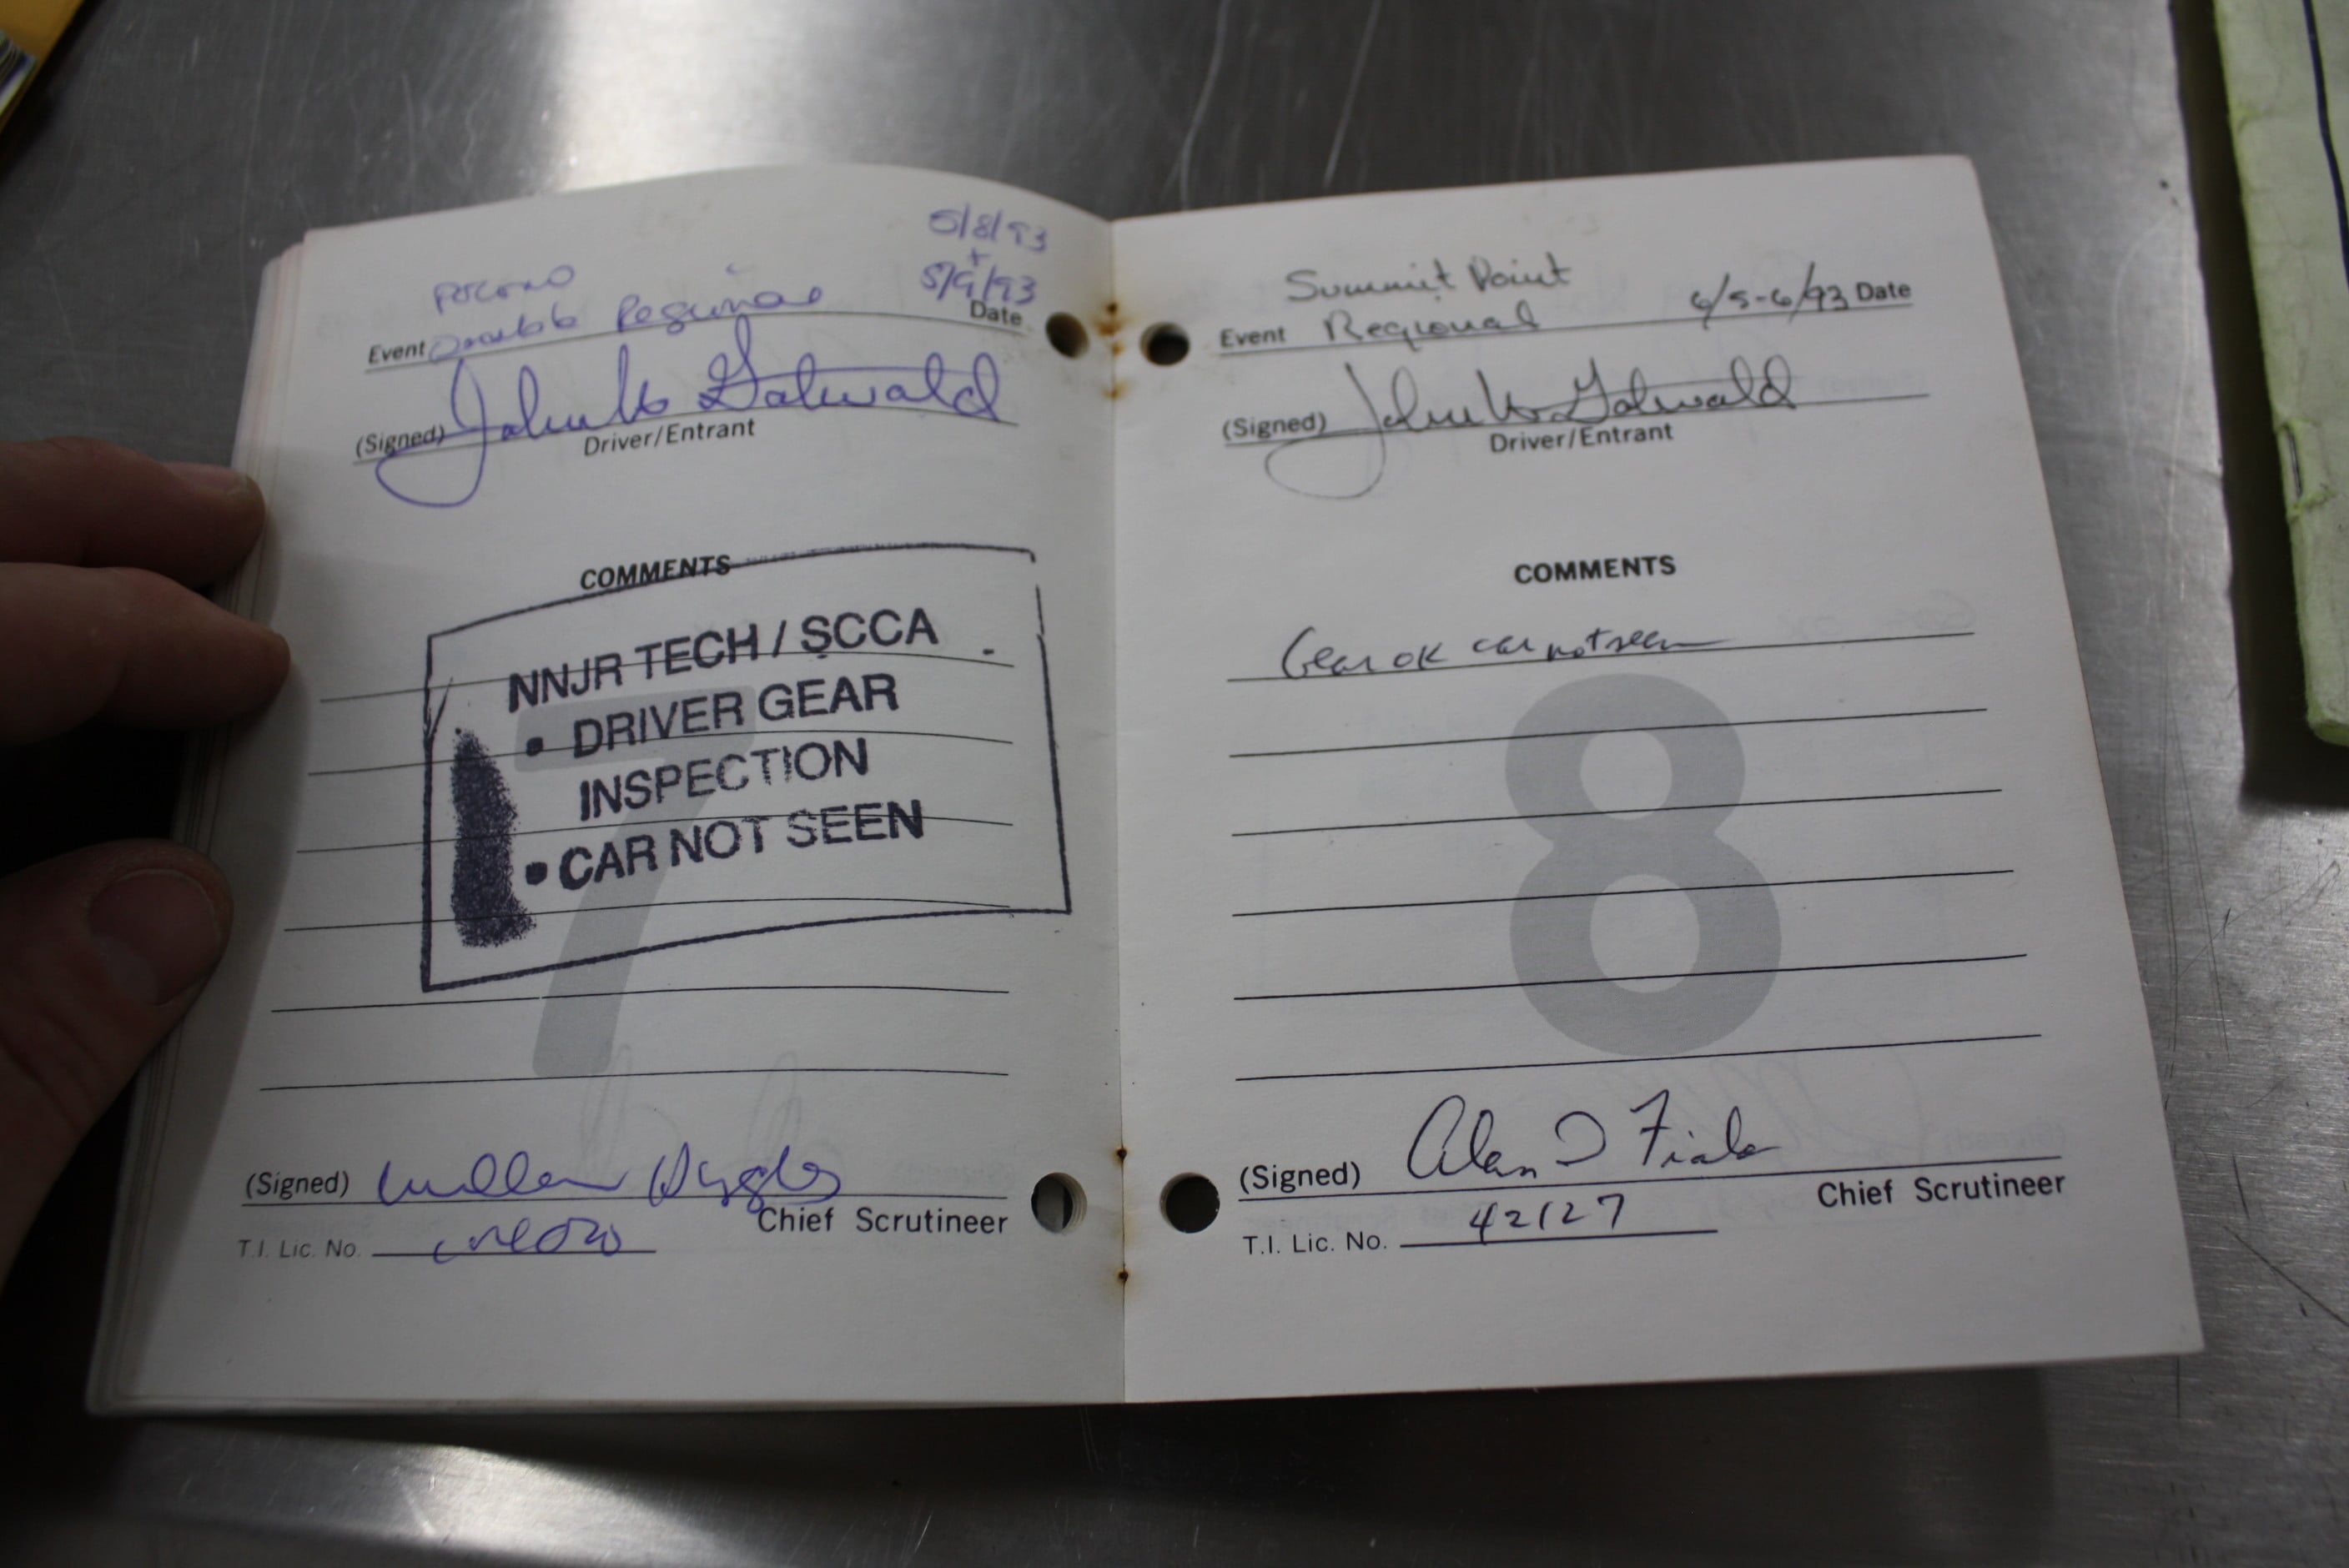 5/8/93
+
Pocono
5/9/93
Event Double Regional
Date
(Signed) John W Gatwald
Driver/Entrant
COMMENTS
NNJR TECH / SCCA
• DRIVER GEAR
INSPECTION
• CAR NOT SEEN
7
(Signed)
Chief Scrutineer
T.I. Lic. No.
Summit Point
Event Regional 6/5-6/93 Date
(Signed) John W Gatwald
Driver/Entrant
COMMENTS
Gear ok car not seen
8
(Signed) Alan D
Chief Scrutineer
T.I. Lic. No. 42127